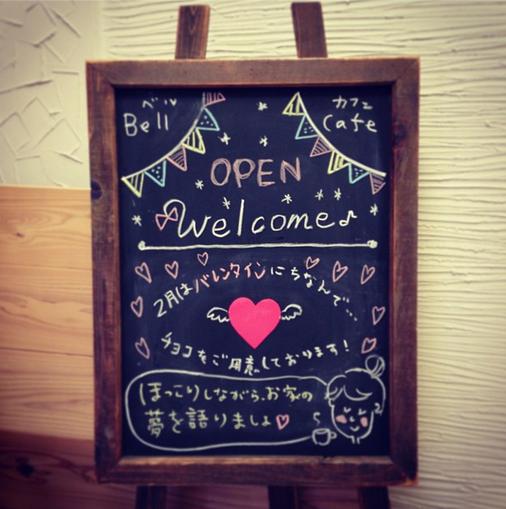 ベル
Bell
カフェ
Cafe
OPEN
Welcome♪
2月はバレンタインにちなんで…
チョコをご用意しております!
ほっこりしながら、お家の
夢を語りましょ♡